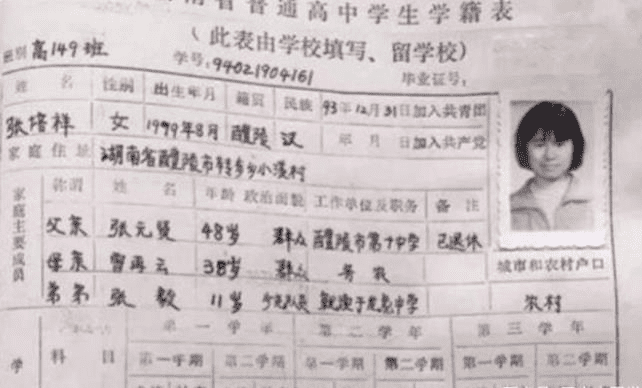 南省普通高中学生学籍表
(此表由学校填写、留学校)
班别 高149班 学号:94021904161 毕业证号:
姓 名 性别 出生年月 籍贯 民族 93年12月31日加入共青团
张培祥 女 1979年8月 醴陵 汉 年 月 日加入共产党
家庭住址 湖南省醴陵市转步乡小溪村
家庭主要成员 称谓 姓 名 年龄 政治面貌 工作单位及职务 备 注
父亲 张元贤 48岁 群众 醴陵市第十中学 已退休
母亲 曾再云 38岁 群众 务农
城市和农村户口
弟弟 张毅 11岁 少先队员 就读于 中学
农村
第 一 学 年 第 二 学 年 第 三 学 年
学 科 目 第一学期 第二学期 第一学期 第二学期 第一学期 第二学期